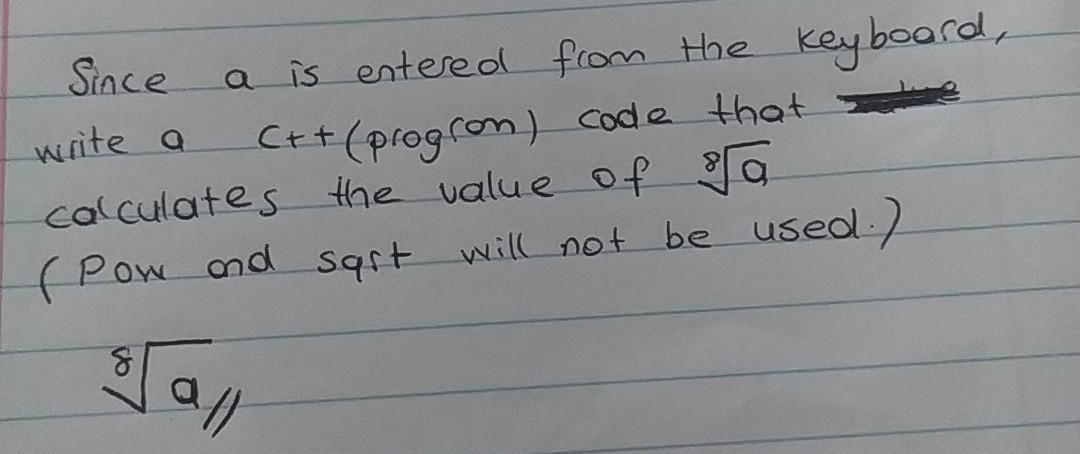 Since a is entered from the keyboard,
write a C++ (progron) code that
calculates the value of ⁸√a
(Pow and sqrt will not be used.)
⁸√a //